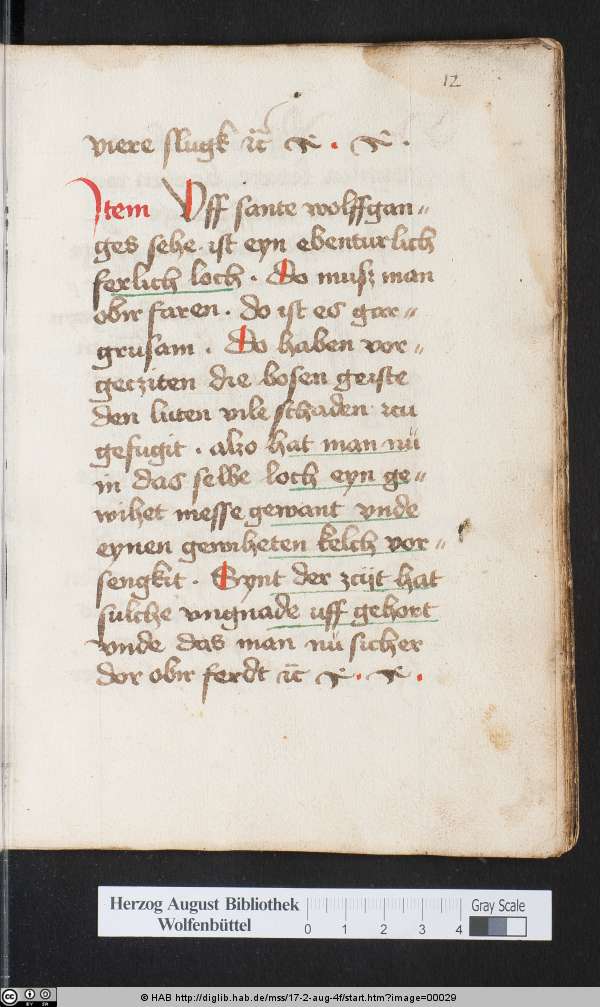 12
viere slugk ꝛc̄
Item Uff sante wolffgan〃
ges sehe · ist eyn ebenturlich
ferlich loch · Do musz man
obir faren · do ist es gar〃
grusam · Do haben vor〃
gecziten die bosen geiste
den luten vile schaden zcu
gefugit · also hat man nū
in das selbe loch eyn ge〃
wihet messe gewant vnde
eynen gewiheten kelch vor〃
sengkit · Synt der zcijt hat
sulche vngnade uff gehort
vnde das man nū sicher
dor obir ferdt ꝛc̄
Herzog August Bibliothek
Wolfenbüttel
0 1 2 3 4
Gray Scale
© HAB http://diglib.hab.de/mss/17-2-aug-4f/start.htm?image=00029